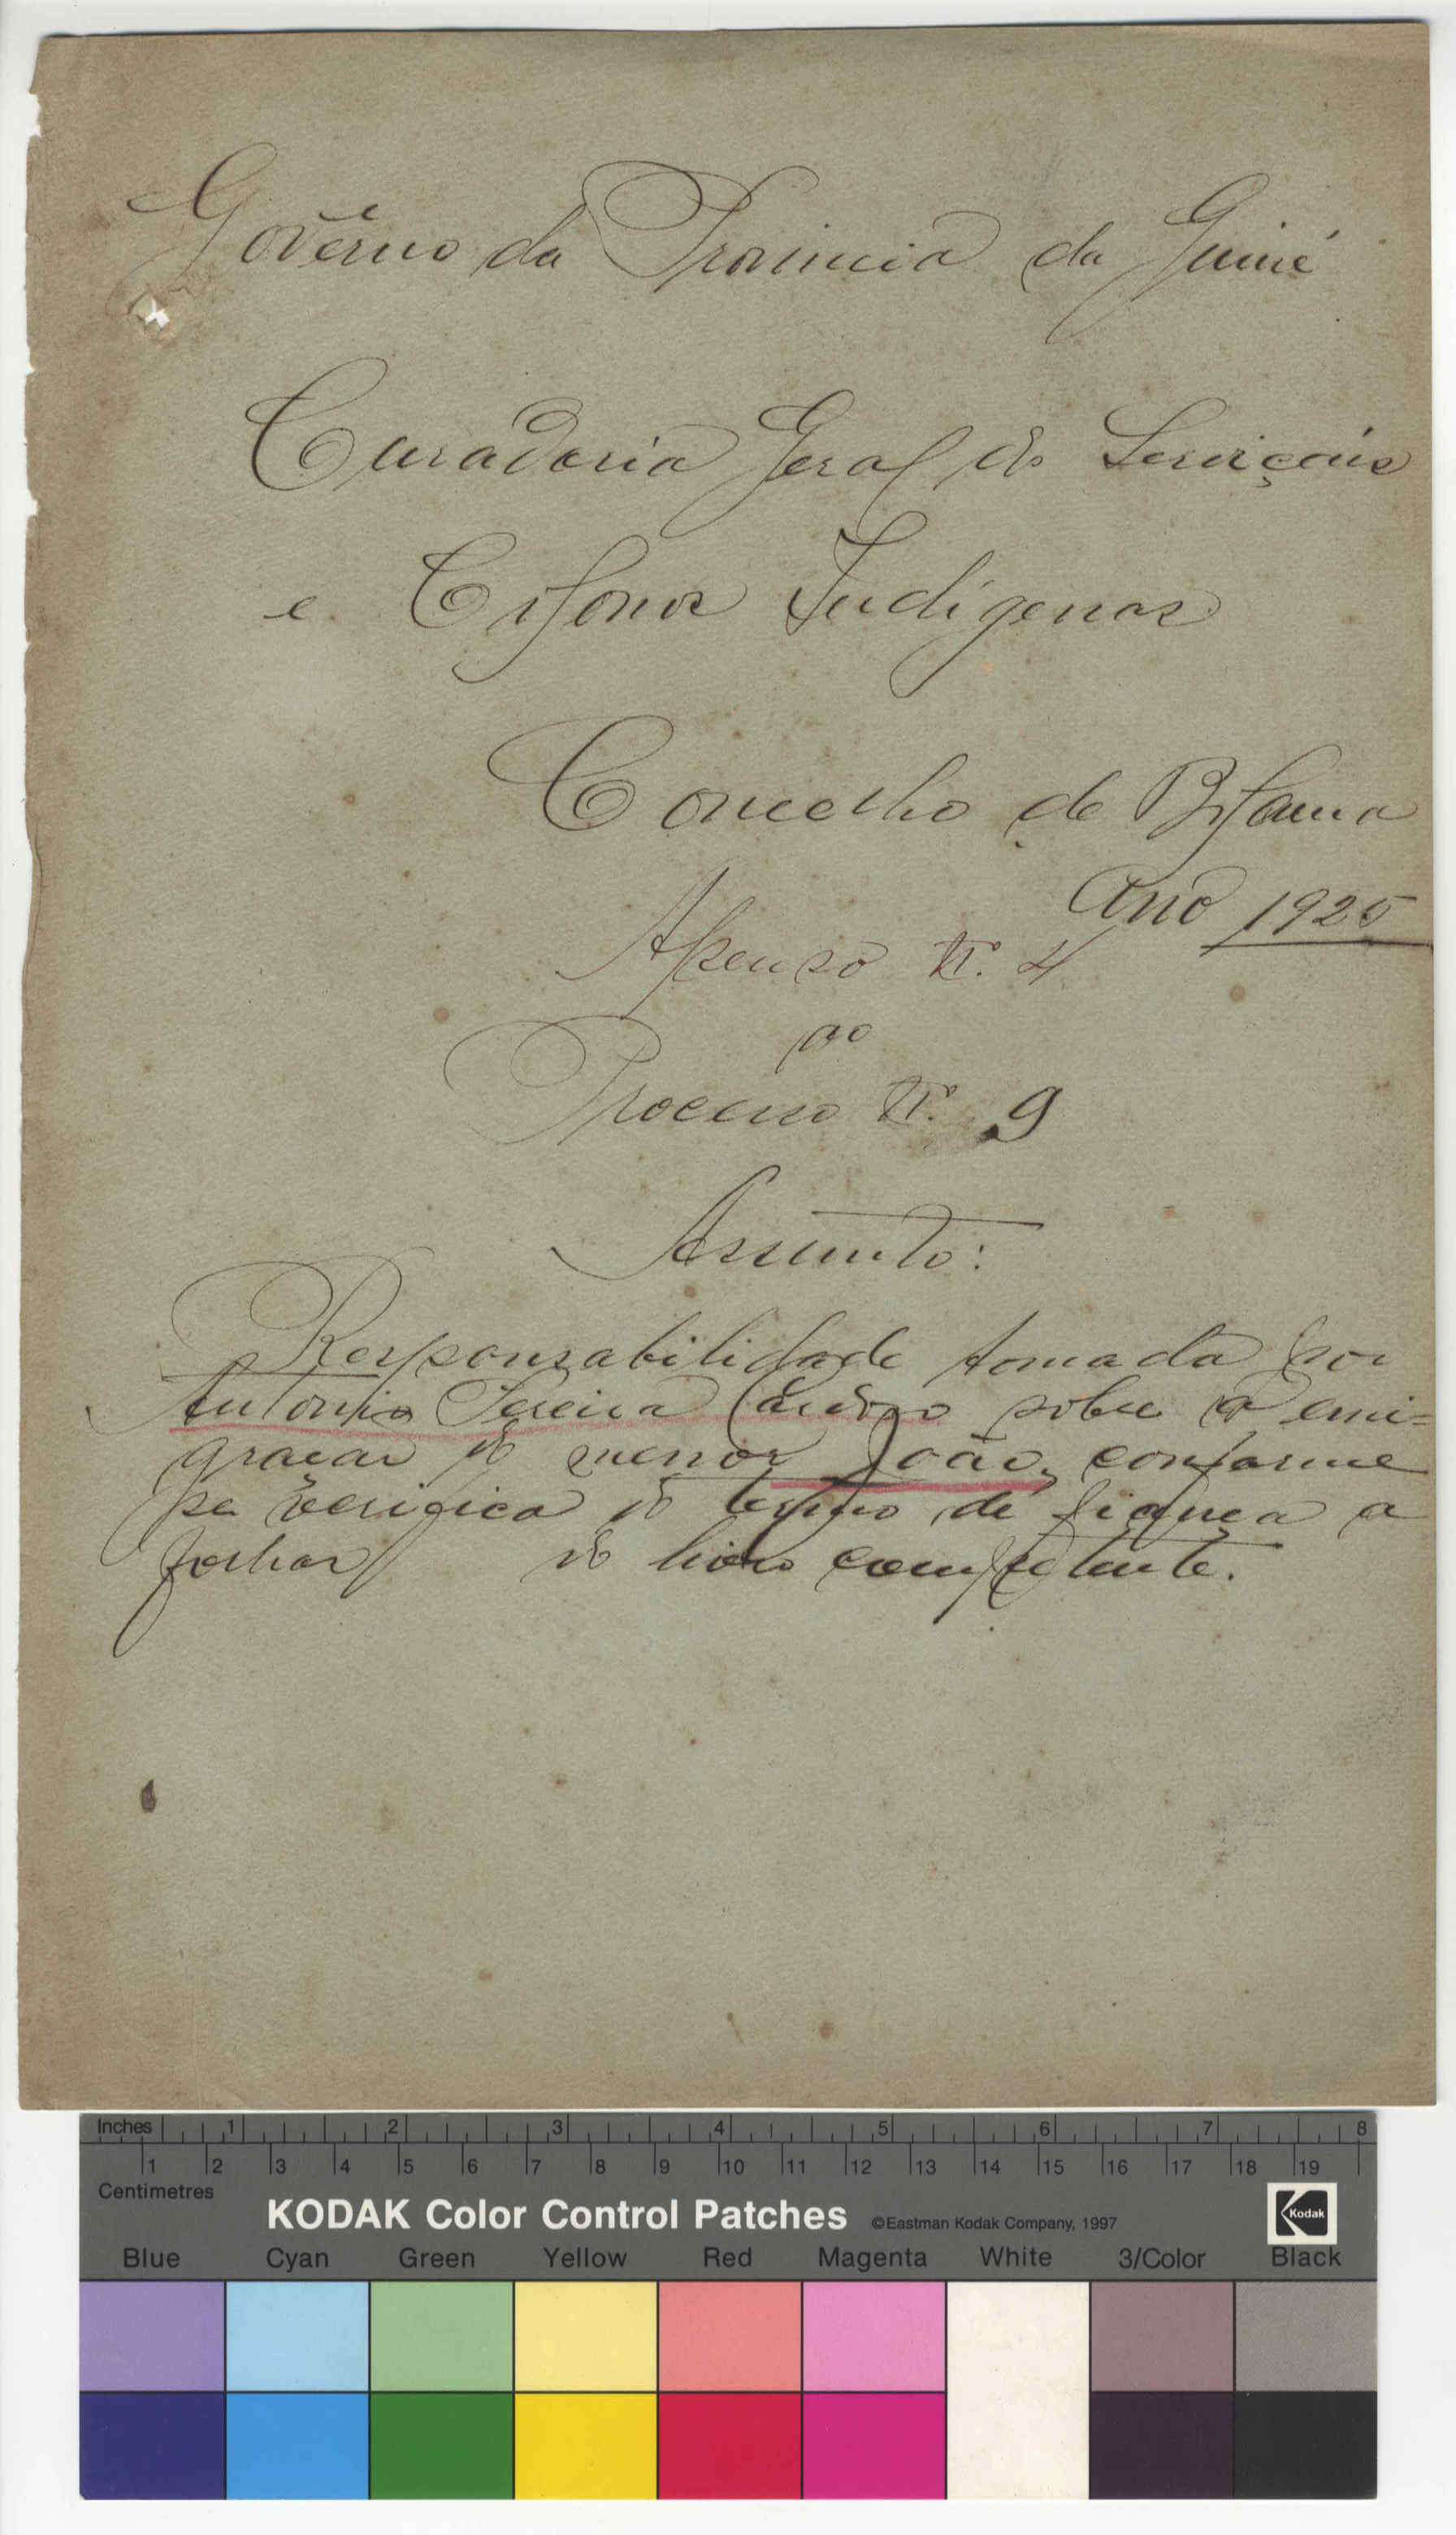 Govêrno da Provincia da Guiné
Curadoria Geral de Serviçais
e Colonos Indígenas
Concelho de Bolama
Ano 1925
Apenso N.º 4
ao
Processo N.º 9
Assunto:
Responsabilidade tomada por
Antonio Pereira Cardoso sobre a emi=
gração do menor João, conforme
se verifica do termo de fiança a
folhas do livro competente.
Inches 1 2 3 4 5 6 7 8
1 2 3 4 5 6 7 8 9 10 11 12 13 14 15 16 17 18 19
Centimetres
KODAK Color Control Patches ©Eastman Kodak Company, 1997 Kodak
Blue Cyan Green Yellow Red Magenta White 3/Color Black